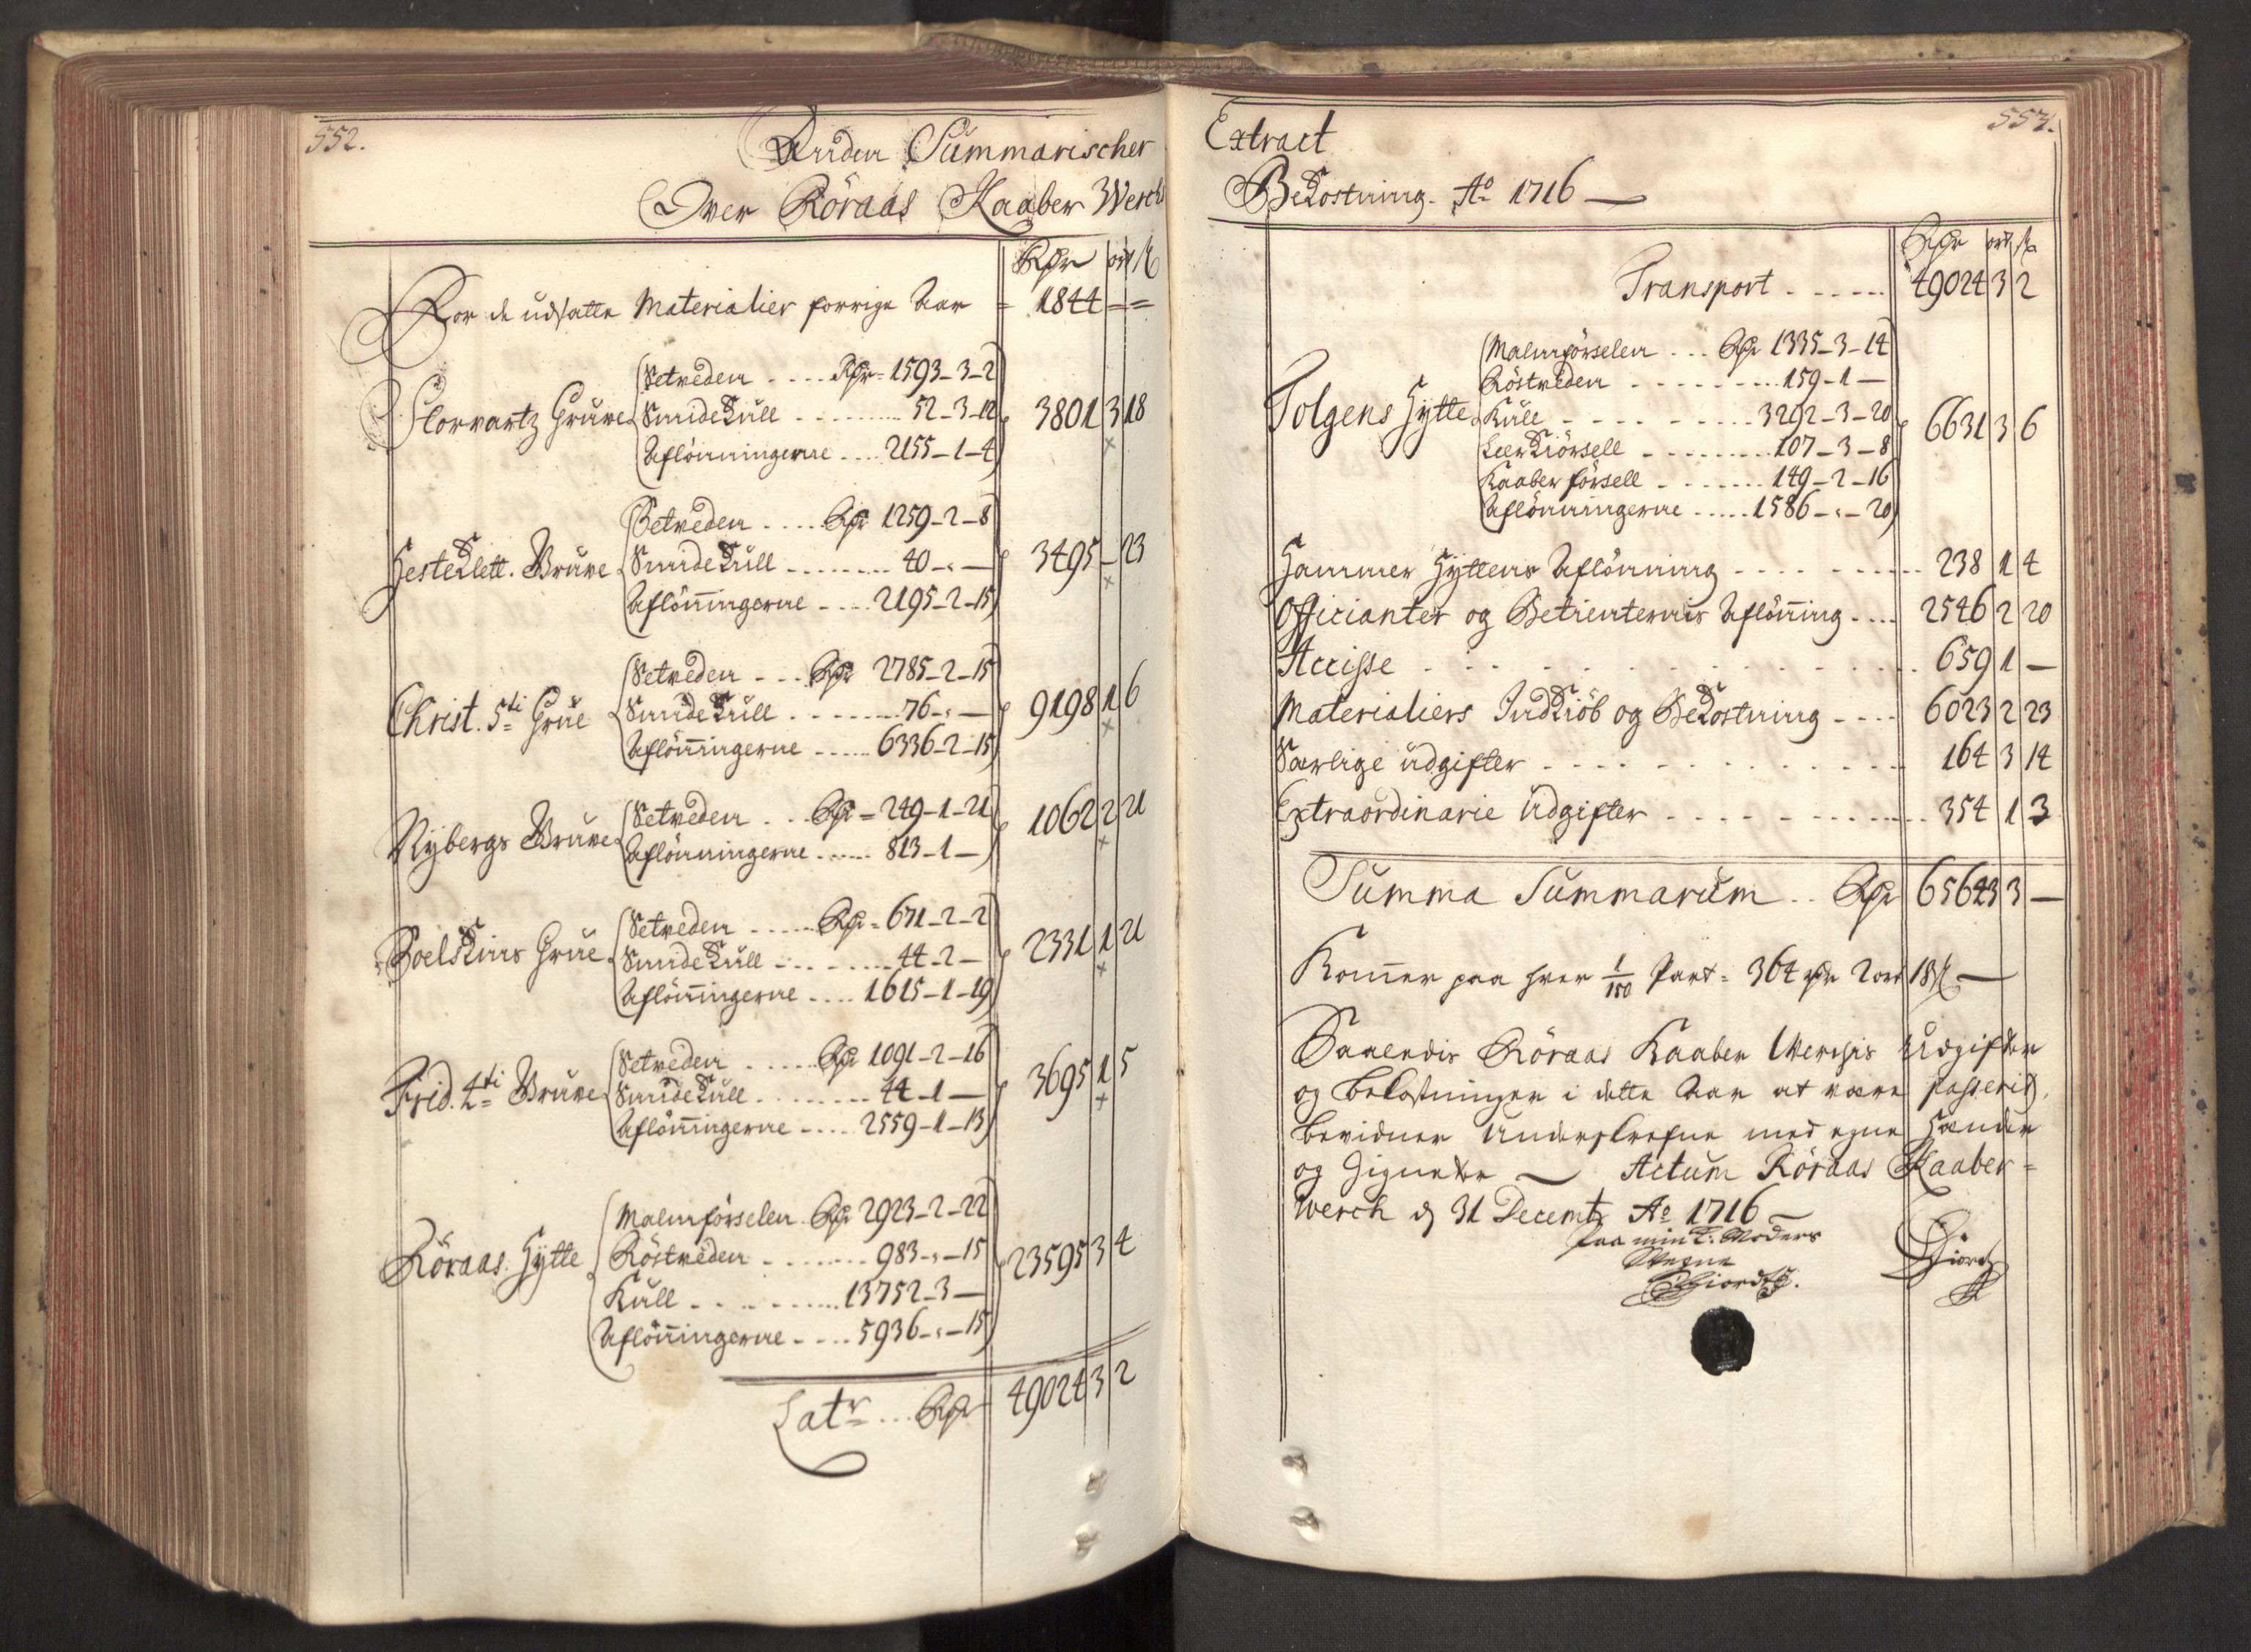 552.
Anden Summarischer
Over Röraas Kaaber Werchs
Rdr ort ß
For de udsatte Materialier forrige Aar = 1844 – =
Storvartz Gruve
Setveden .... Rdr = 1593-3-2
Smidekull ......... 52-3-12
Aflönningerne .... 2155-1-4
3801 3 18
Hesteklett. Gruve
Setveden .... Rdr 1259-2-8
Smidekull ........ 40-"-
Aflöningerne .... 2195-2-15
3495 – 23
Christ. 5ti Grue
Setveden ... Rdr 2785-2-15
Smidekull ....... 76-"-
Aflöningerne ..... 6336-2-15
9198 1 6
Nybergs Gruve
Setveden ... Rdr = 249-1-21
Aflönningerne ...... 813-1-
1062 2 21
Soelskins Grue
Setveden ..... Rdr = 671-2-2
Smidekull ......... 44-2-
Aflönningerne .... 1615-1-19
2331 1 21
Frid. 4ti Gruve
Setveden ..... Rdr 1091-2-16
Smidekull ........ 44-1-
Aflöningerne ..... 2559-1-13
3695 1 5
Röraas. Hytte
Malmförselen. Rdr 2923-2-22
Röstveden ........ 983-"-15
Kull .......... 13752-3-
Aflöningerne .... 5936-"-15
23595 3 4
Latr ... Rdr 49024 3 2
553.
Extract
Bekostning. Ao 1716 —
Rdr ort ß
Transport ...... 49024 3 2
Tolgens Hytte
Malmförselen ... Rdr 1335-3-14
Röstveden ......... 159-1-
Kull .......... 3292-3-20
Leerkiörsell ......... 107-3-8
Kaaber försell ....... 149-2-16
Aflönningerne ..... 1586-"-20
6631 3 6
Hammer Hyttens Aflönning ......... 238 1 4
Officianter og Betienternis Aflöning .... 2546 2 20
Accisse ................. 659 1 –
Materialiers Indkiöb og Bekostning .... 6023 2 23
Særlige udgifter ............. 164 3 14
Extraordinarie Udgifter .......... 354 1 3
Summa Summarum .. Rdr 65643 3 –
Komer paa hver 1/180 Part = 364 rdr 2 ort 18 ß —
Saaledis Röraas Kaaber Werchis Udgifter
og bekostninger i dette Aar at være passerit,
bevidner Underskrefne med egne Hænder
og Signeter — Actum Röraas Kaaber =
Werch d 31 Decembr Ao 1716 —
Paa min Moders
Vegne